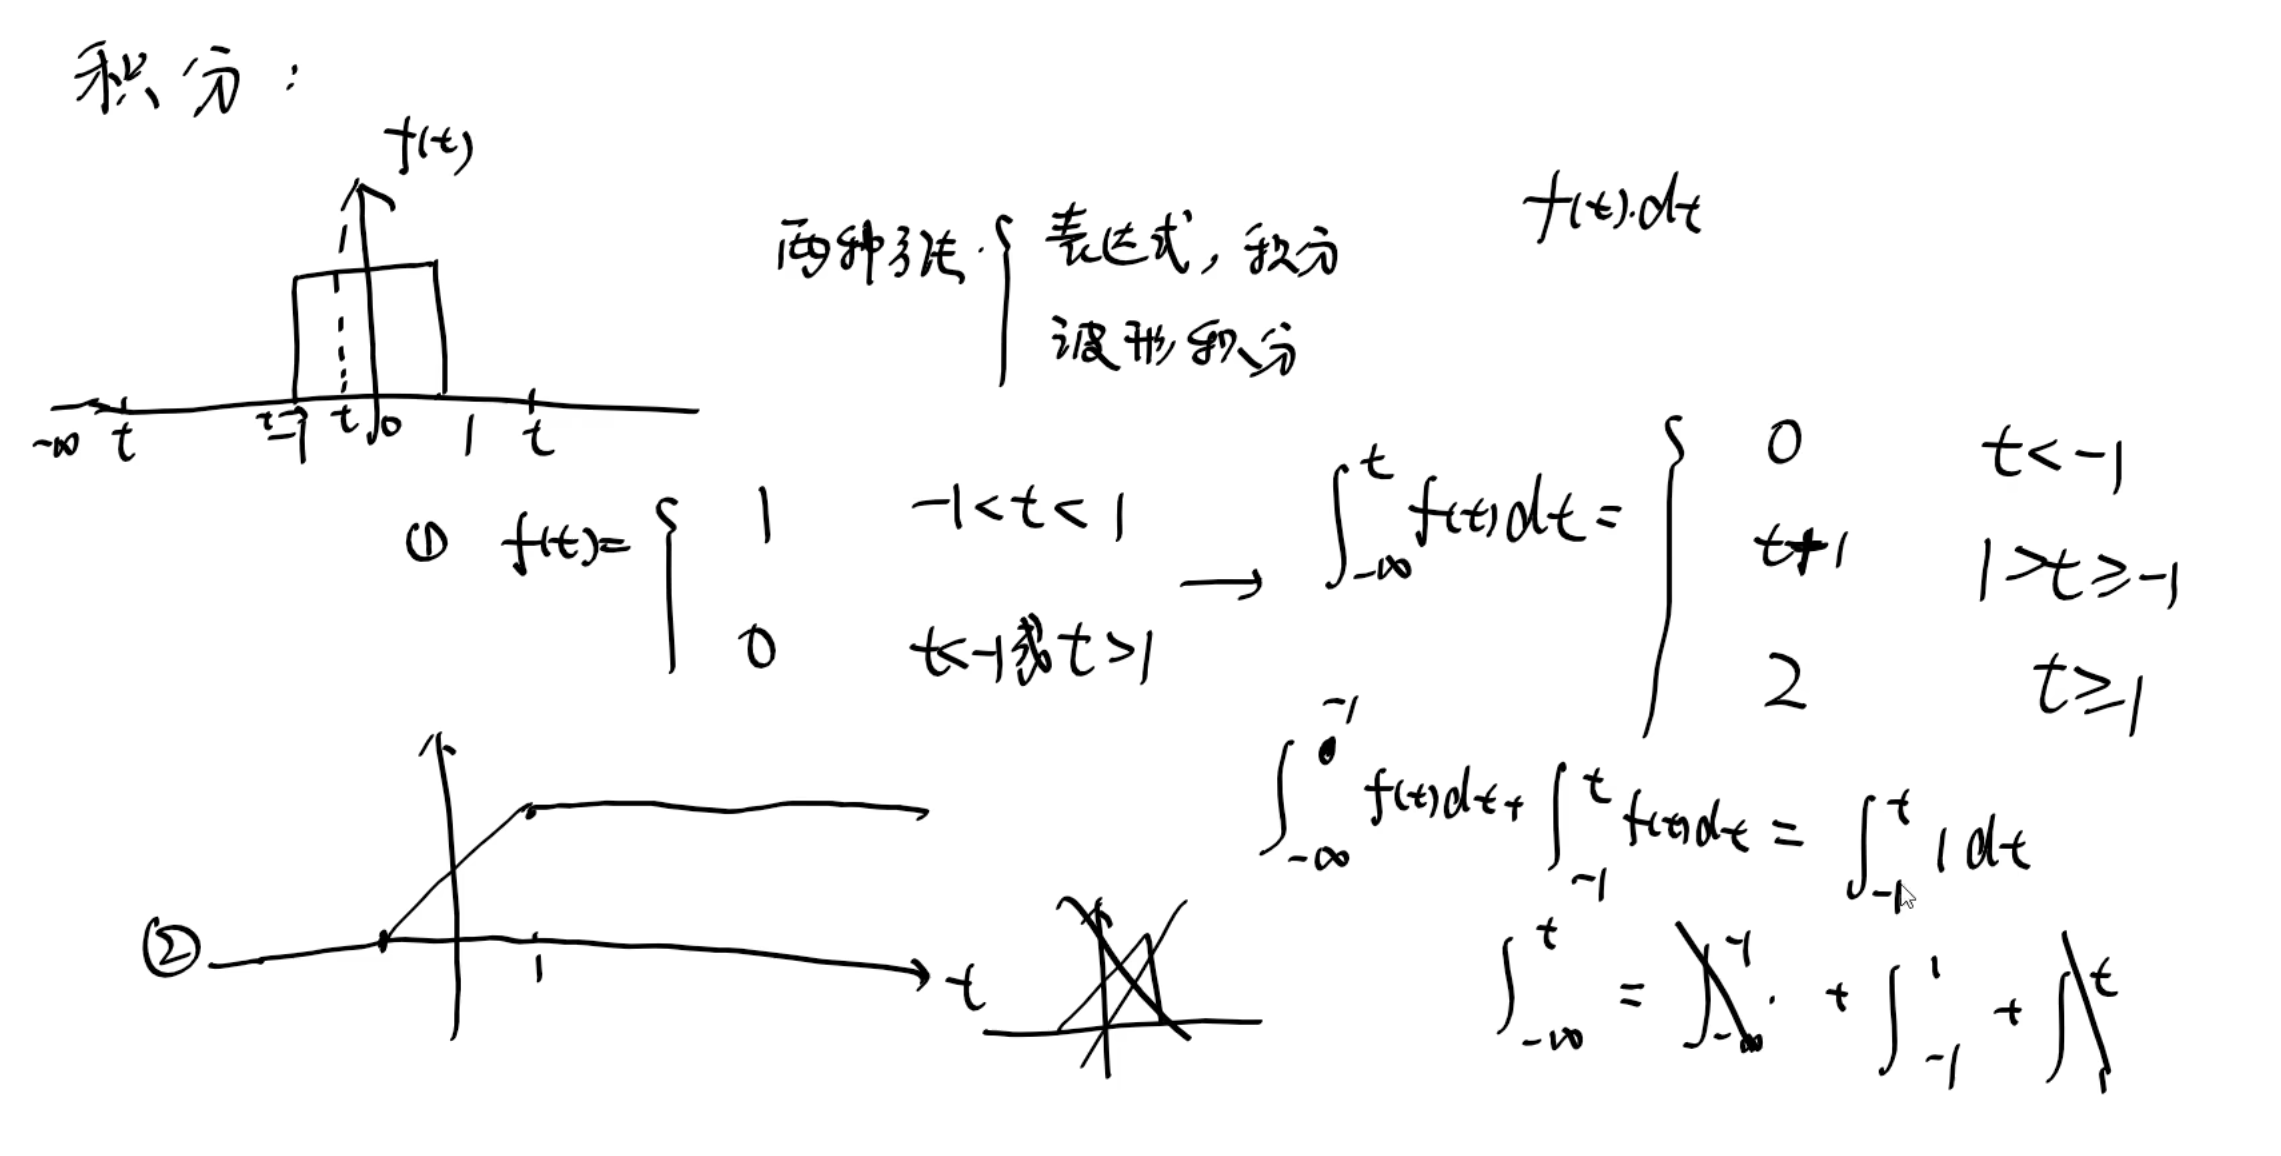 积分：
f(t)
f(t).dt
两种方法. { 表达式, 积分
波形积分
-∞ t t=-1 t 0 1 t
① f(t)= { 1 -1<t<1
0 t<-1或t>1
→ ∫_{-∞}^{t} f(t)dt = { 0 t<-1
t+1 1>t≥-1
2 t≥1
∫_{-∞}^{-1} f(t)dt + ∫_{-1}^{t} f(t)dt = ∫_{-1}^{t} 1 dt
② 1 t
∫_{-∞}^{t} = ∫_{-∞}^{-1} . + ∫_{-1}^{1} + ∫_{1}^{t}